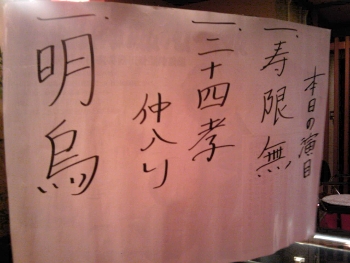 本日の演目
一、寿限無
一、二十四孝
仲入り
一、明烏